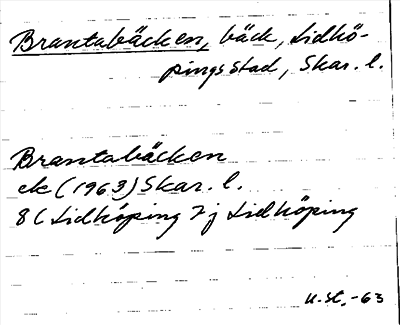 Brantabäcken, bäck, Lidkö-
pings stad, Skar. l.
Brantabäcken
ek (1963) Skar. l.
8C Lidköping 7j Lidköping
-63